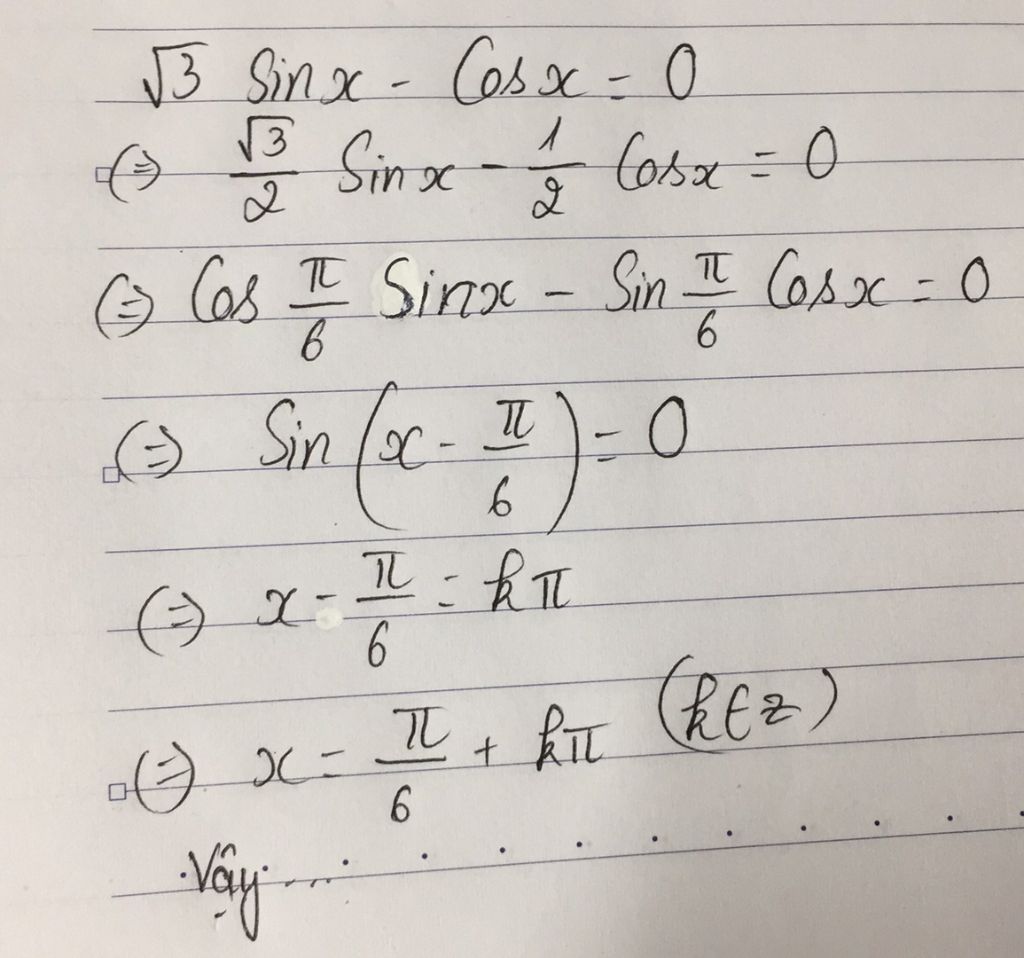 √3 Sinx - Cosx = 0
(=) √3/2 Sinx - 1/2 Cosx = 0
(=) Cos π/6 Sinx - Sin π/6 Cosx = 0
(=) Sin (x - π/6) = 0
(=) x - π/6 = kπ
(=) x = π/6 + kπ (k∈z)
Vậy....